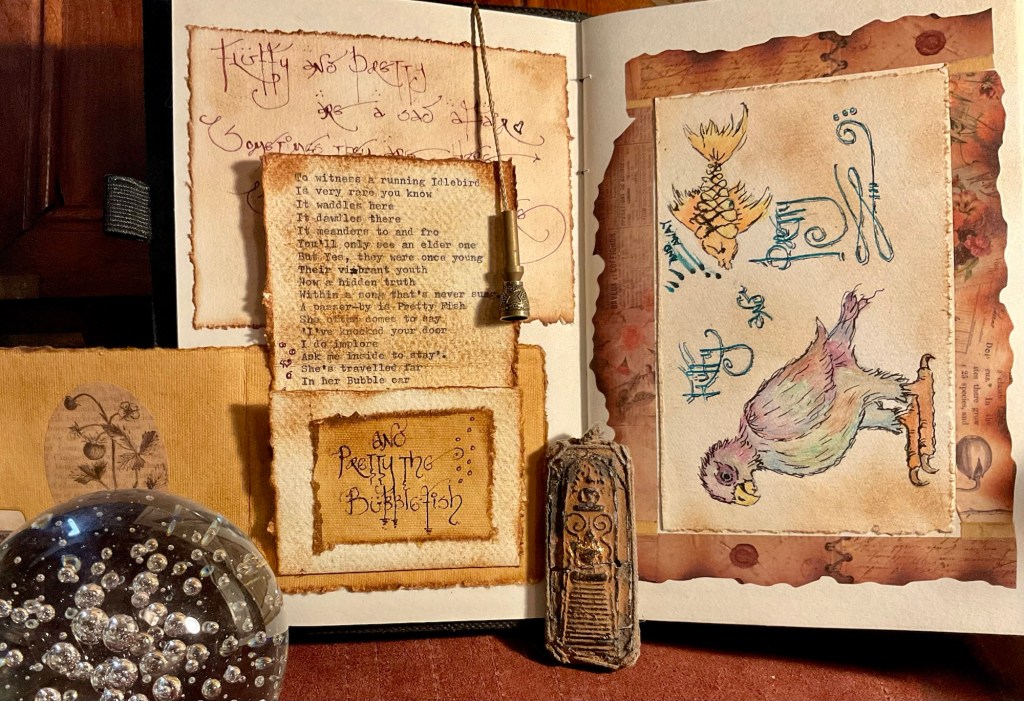 Fluffy and Pretty
are a sad affair
Sometimes they are
To witness a running Idlebird
Is very rare you know
It waddles here
It dawdles there
It meanders to and fro
You'll only see an elder one
But Yes, they were once young
Their vibrant youth
Now a hidden truth
Within a song that's never sung
A passer-by is Pretty Fish
She often comes to say
'I've knocked your door
I do implore
Ask me inside to stay'.
She's travelled far
In her Bubble car
and
Pretty the
Bubblefish
Fluffy
and
Pretty